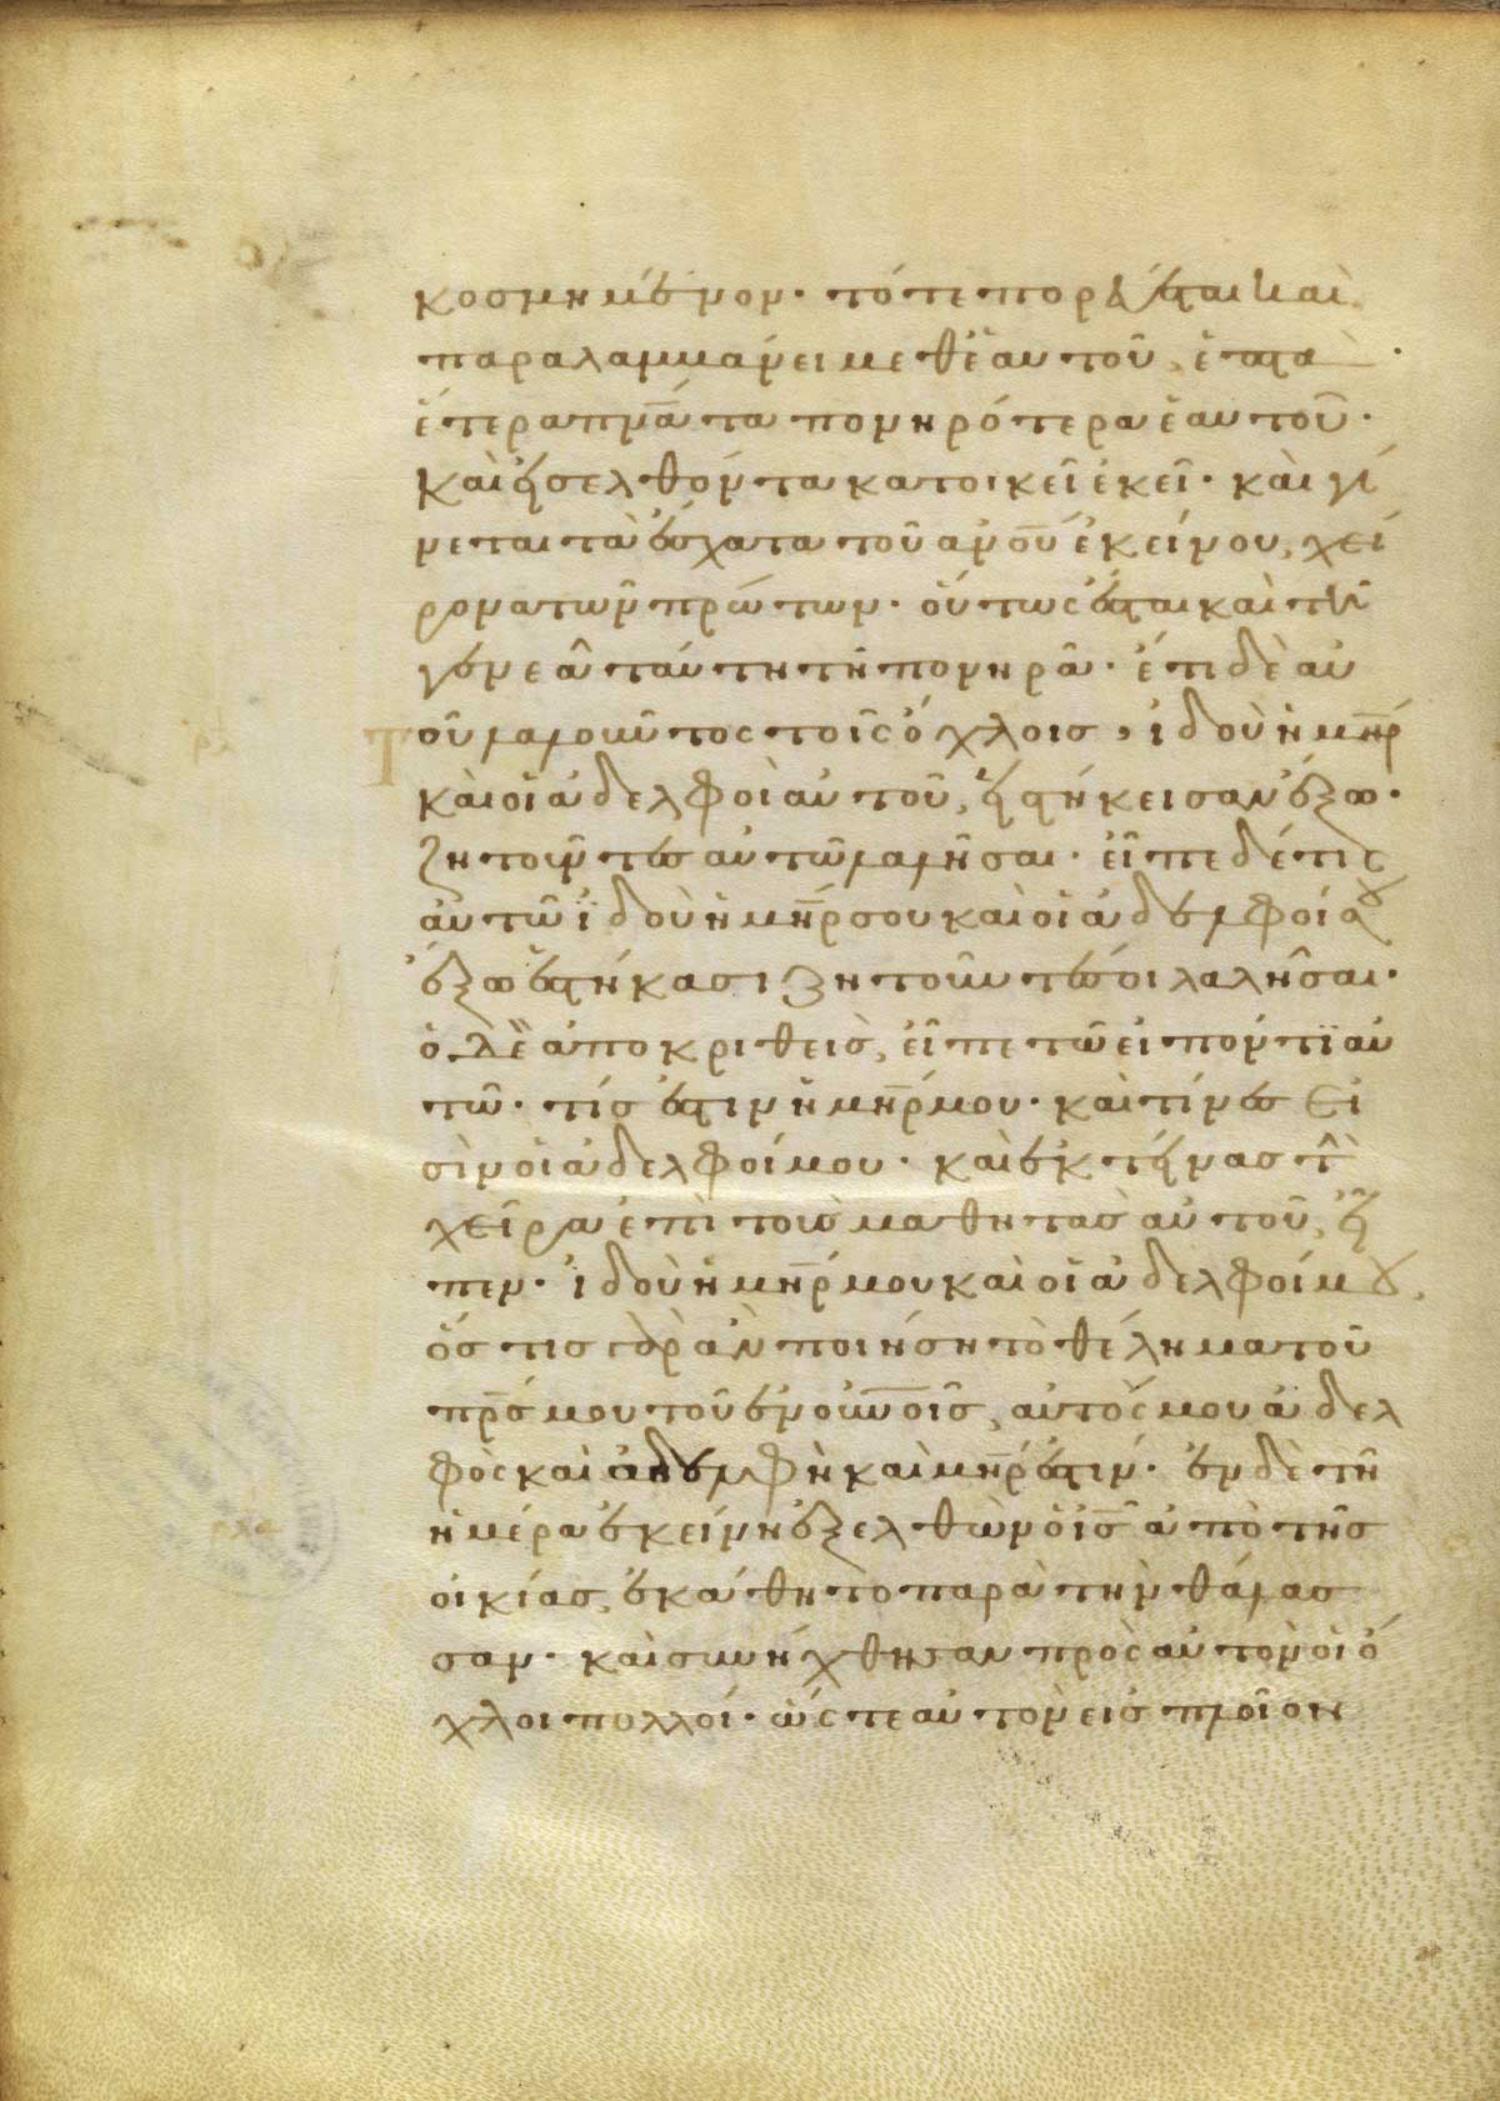 κοσμημένον· τότε πορεύεται καὶ
παραλαμμάνει μεθ ἑαυτοῦ, ἑπτὰ
ἕτερα πν̅ά̅τα πονηρότερα ἑαυτοῦ·
Καὶ εἰσελθόντα κατοικεῖ ἐκεῖ· καὶ γί
νεται τὰ ἔσχατα τοῦ αν̅ο̅υ̅ ἐκείνου, χεί
ρονα τῶν πρώτων· οὕτως ἔσται καὶ τῆ
γενεᾶ ταύτη τῆ πονηρᾶ· ἔτι δὲ αὐ
τοῦ λαλοῦντος τοῖς ὄχλοισ, ἰδοὺ ἡ μη̅ρ̅
καὶ οἱ ἀδελφοὶ αὐτοῦ, εἱστήκεισαν ἔξω·
ζητοῦντεσ αὐτῶ λαλῆσαι· εἶπε δέ τις
αὐτῶ ἰδοὺ ἡ μη̅ρ̅ σου καὶ οἱ ἀδελφοί σου
ἔξω ἑστήκασι ζητοῦντέσ σοι λαλῆσαι·
ὁ δὲ ἀποκριθεὶσ, εἶπε τῶ εἰπόντϊ αὐ
τῶ· τίσ ἐστιν ἡ μη̅ρ̅ μου· καὶ τίνεσ εἰ
σὶν οἱ ἀδελφοί μου· καὶ ἐκτείνασ τὴν
χεῖρα ἐπὶ τοὺσ μαθητὰσ αὐτοῦ, εἶ
πεν· ἰδοὺ ἡ μη̅ρ̅ μου καὶ οἱ ἀδελφοί μου,
ὅστισ γὰρ ἂν ποιήση τὸ θέλημα τοῦ
πρ̅σ̅ μου τοῦ ἐν οὐ̅ν̅οῖσ, αὐτός μου ἀδελ
φὸς καὶ ἀδελφὴ καὶ μη̅ρ̅ ἐστιν· ἐν δὲ τῆ
ἡμέρα ἐκείνη ἐξελθὼν ὁ ι̅σ̅ ἀπὸ τῆσ
οἰκίασ, ἐκάθητο παρὰ τὴν θάλασ
σαν· καὶ συνήχθησαν πρὸς αὐτὸν οἱ ὄ
χλοι πολλοί· ὥςτε αὐτὸν εἰσ πλοῖον